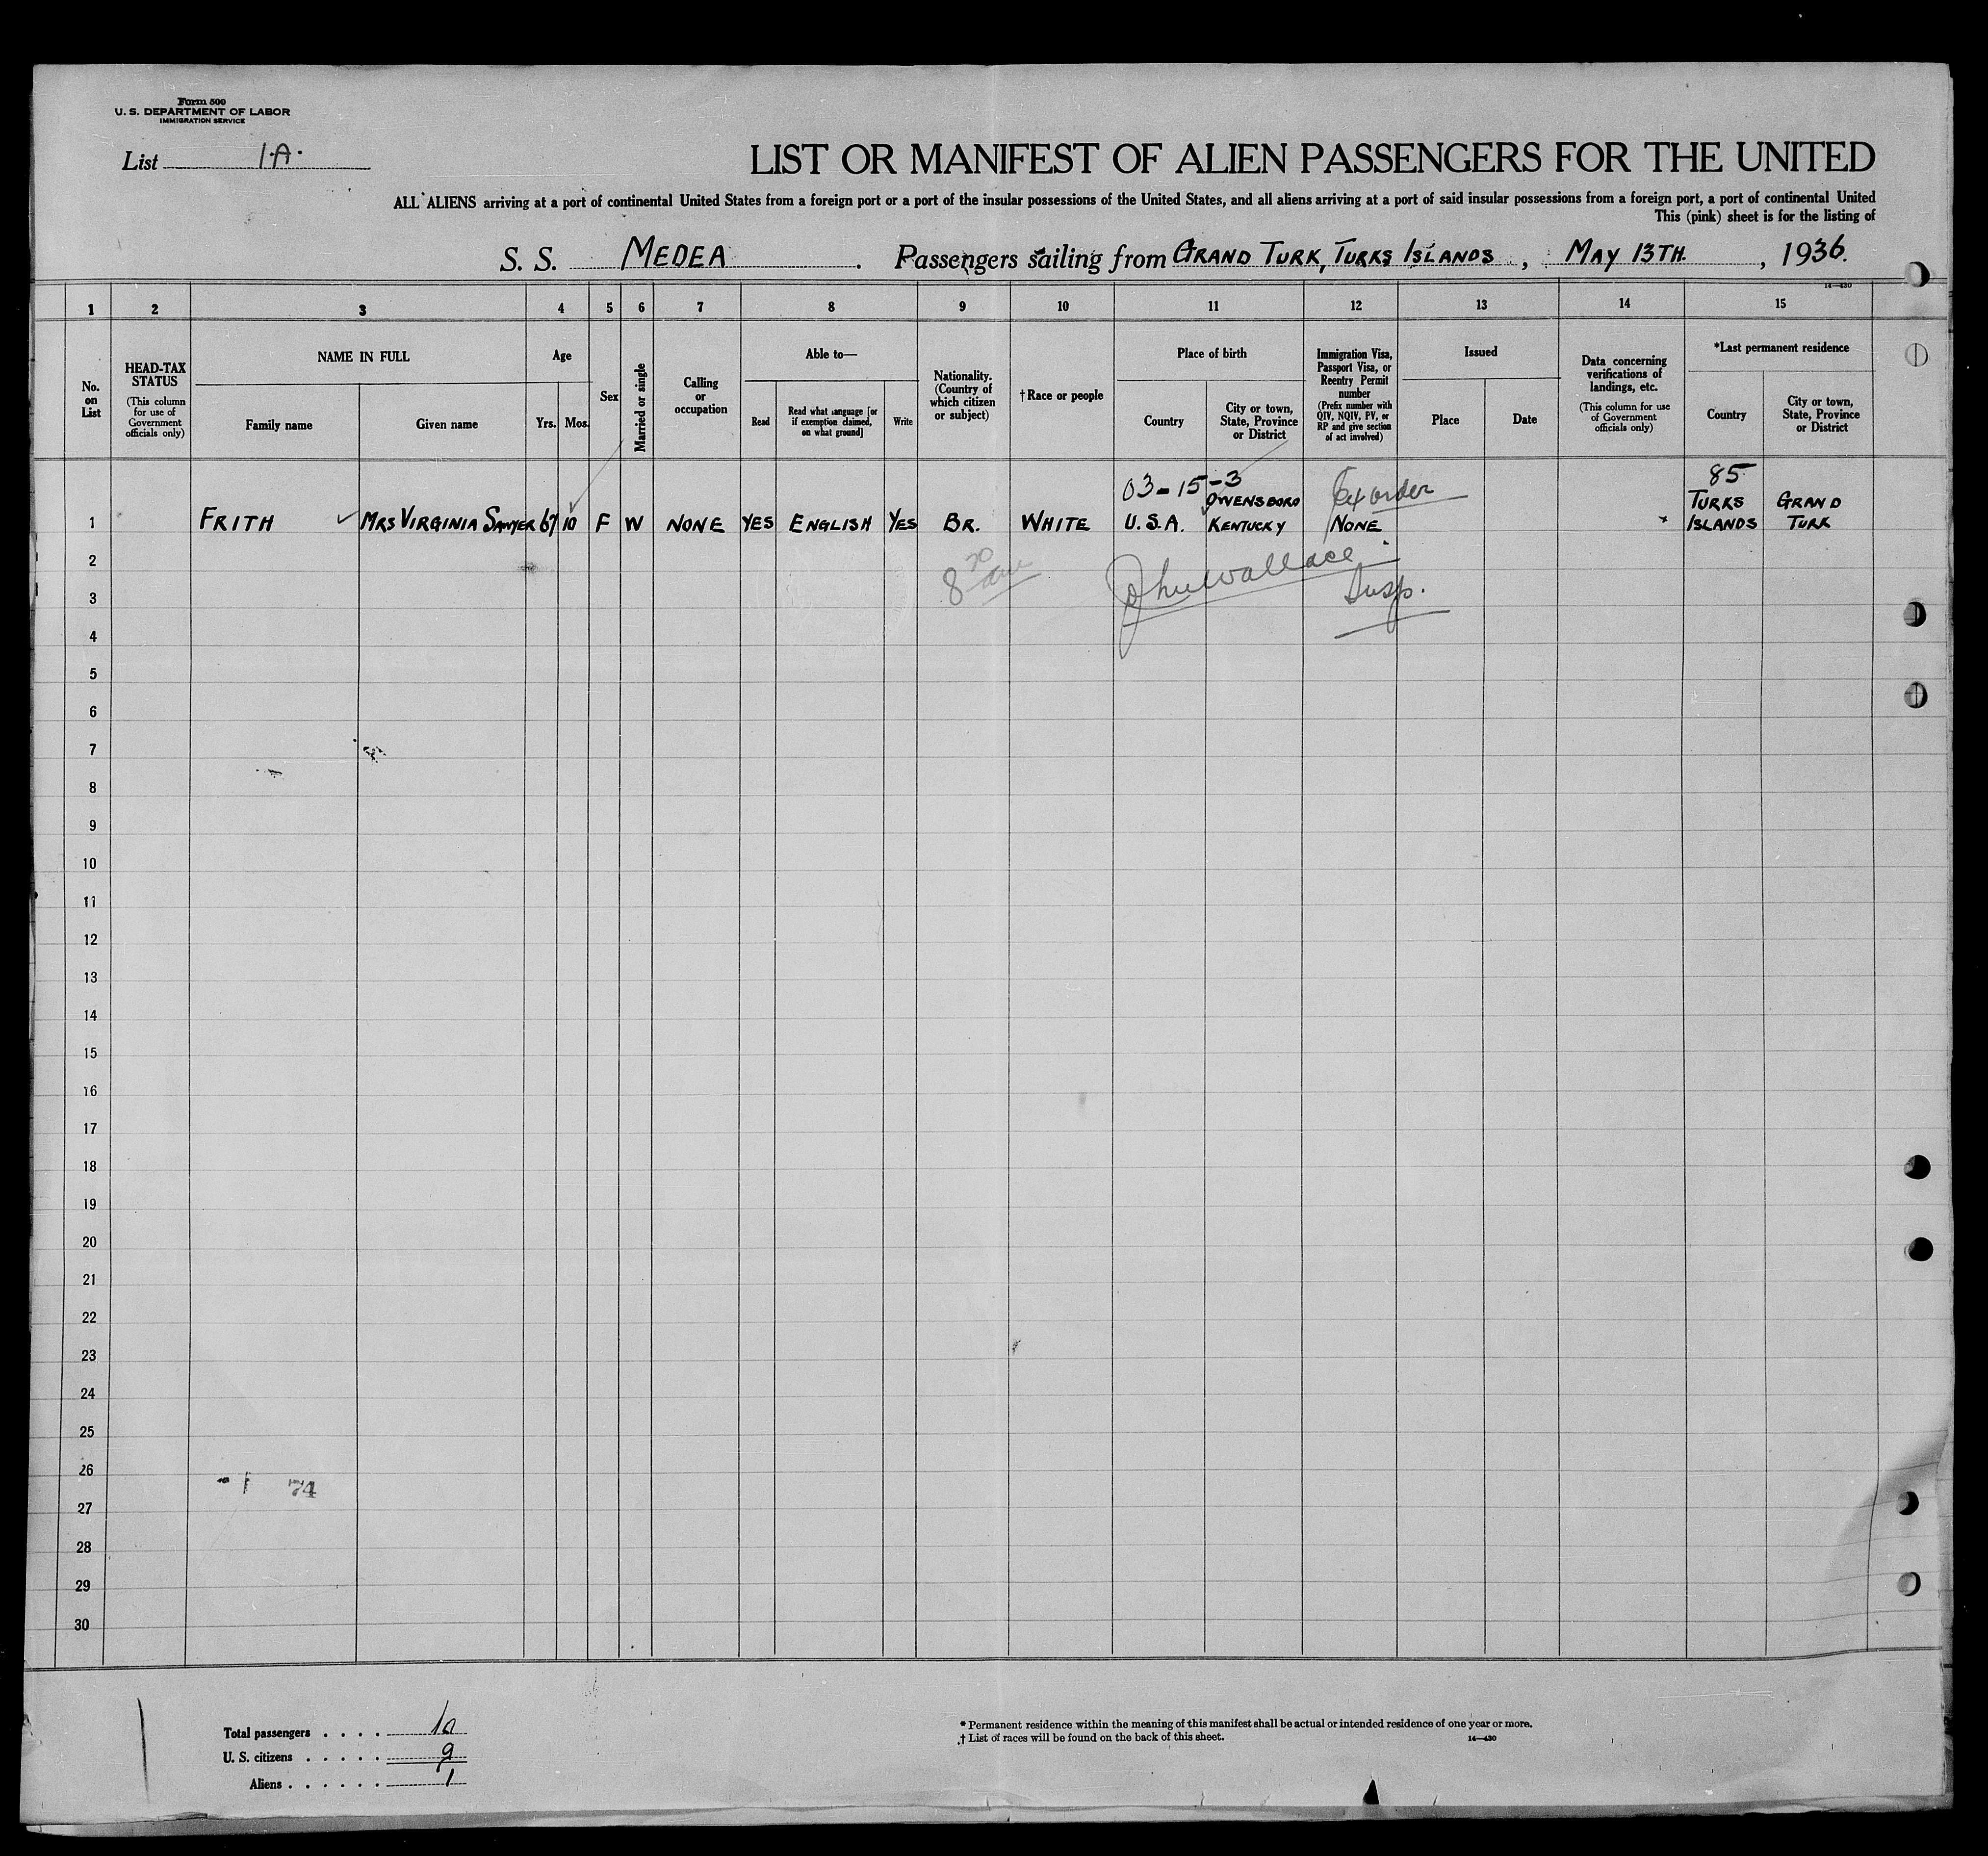 Form 500
U. S. DEPARTMENT OF LABOR
IMMIGRATION SERVICE
List 1-A.
LIST OR MANIFEST OF ALIEN PASSENGERS FOR THE UNITED
ALL ALIENS arriving at a port of continental United States from a foreign port or a port of the insular possessions of the United States, and all aliens arriving at a port of said insular possessions from a foreign port, a port of continental United
This (pink) sheet is for the listing of
S. S. MEDEA. Passengers sailing from GRAND TURK, TURKS ISLANDS, MAY 13TH., 1936.
14—430
1 2 3 4 5 6 7 8 9 10 11 12 13 14 15
No. on List
HEAD-TAX STATUS
(This column for use of Government officials only)
NAME IN FULL
Family name
Given name
Age
Yrs.
Mos.
Sex
Married or single
Calling or occupation
Able to—
Read
Read what language [or if exemption claimed, on what ground]
Write
Nationality. (Country of which citizen or subject)
†Race or people
Place of birth
Country
City or town, State, Province or District
Immigration Visa, Passport Visa, or Reentry Permit number
(Prefix number with QIV, NQIV, PV, or RP and give section of act involved)
Issued
Place
Date
Data concerning verifications of landings, etc.
(This column for use of Government officials only)
*Last permanent residence
Country
City or town, State, Province or District
03-15-3
Ex order
85
1 FRITH MRS VIRGINIA SAWYER 67 10 F W NONE YES ENGLISH YES BR. WHITE U.S.A. OWENSBORO KENTUCKY NONE TURKS ISLANDS GRAND TURK
2
8 30 am
Jno Wallace
3
Insp.
4
5
6
7
8
9
10
11
12
13
14
15
16
17
18
19
20
21
22
23
24
25
26
74
27
28
29
30
Total passengers . . . . 10
U. S. citizens . . . . . 9
Aliens . . . . . . 1
* Permanent residence within the meaning of this manifest shall be actual or intended residence of one year or more.
† List of races will be found on the back of this sheet.
14—430